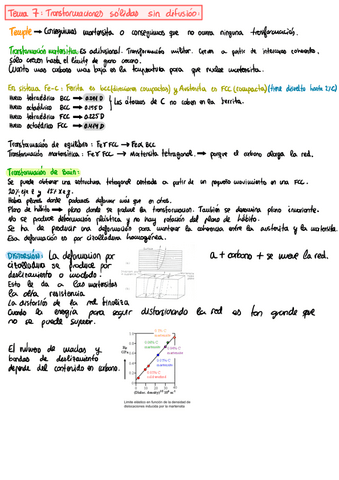 Tema 7: Transformaciones sólidas sin difusión:
Temple → Conseguimos martensita o conseguimos que no ocurra ninguna transformación.
Transformación martensítica: Es adifusional. Transformación militar. Crecen a partir de interfases coherentes,
sólo crecen hasta el límite de grano
Cuanto más carbono más baja es la temperatura para que nuclee martensita.
En sistema Fe-C: Ferrita es bcc (menos compacta) y Austenita es FCC (compacta)
Hueco tetraédrico BCC →
Hueco octaédrico BCC → 0.15 D
Hueco tetraédrico FCC → 0.225 D
Hueco octaédrico FCC → 0.414 D
Los átomos de C no caben en la ferrita.
Transformación de equilibrio: Fe γ FCC → Fe α BCC
Transformación martensítica: Fe γ FCC → Martensita tetragonal. → porque el carbono alarga la red.
Transformación de Bain:
Se puede obtener una estructura tetragonal centrada a partir de un pequeño movimiento en una FCC.
20% eje z y 12% x e y.
Habrá planos donde podamos deformar más que en otros.
Plano de hábito → plano donde se produce la transformación. También se denomina plano invariante.
No se produce deformación plástica y no hay rotación del plano de hábito.
Se ha de producir una deformación para mantener la coherencia entre la austenita y la martensita.
Esa deformación es por cizalladura homogénea.
Distorsión: La deformación por
cizalladura se produce por
deslizamiento o maclado.
Esto le da a las martensitas
la alta resistencia
La distorsión de la red finaliza
cuando la energía para seguir distorsionando la red es tan grande que
no se puede superar.
a + carbono + se mueve la red.
El número de maclas y
bandas de deslizamiento
depende del contenido en carbono.
Límite elástico en función de la densidad de
dislocaciones inducida por la martensita